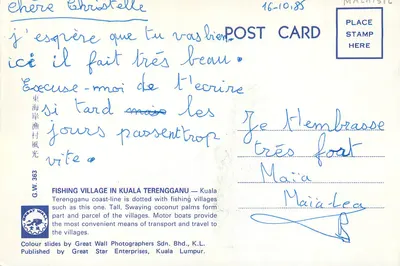 chère Christelle
16-10.85
MALAISIE
POST CARD
PLACE
STAMP
HERE
j'espère que tu vas bien.
ici il fait très beau.
Excuse-moi de t'ecrire
si tard mais les
jours passent trop
vite.
Je t'embrasse
très fort
Maïa
Maïa-Lea
東海岸漁村風光
G.W. 363
FISHING VILLAGE IN KUALA TERENGGANU — Kuala
Terengganu coast-line is dotted with fishing villages
such as this one. Tall, Swaying coconut palms form
part and parcel of the villages. Motor boats provide
the most convenient means of transport and travel to
the villages.
Colour slides by Great Wall Photographers Sdn. Bhd., K.L.
Published by Great Star Enterprises, Kuala Lumpur.